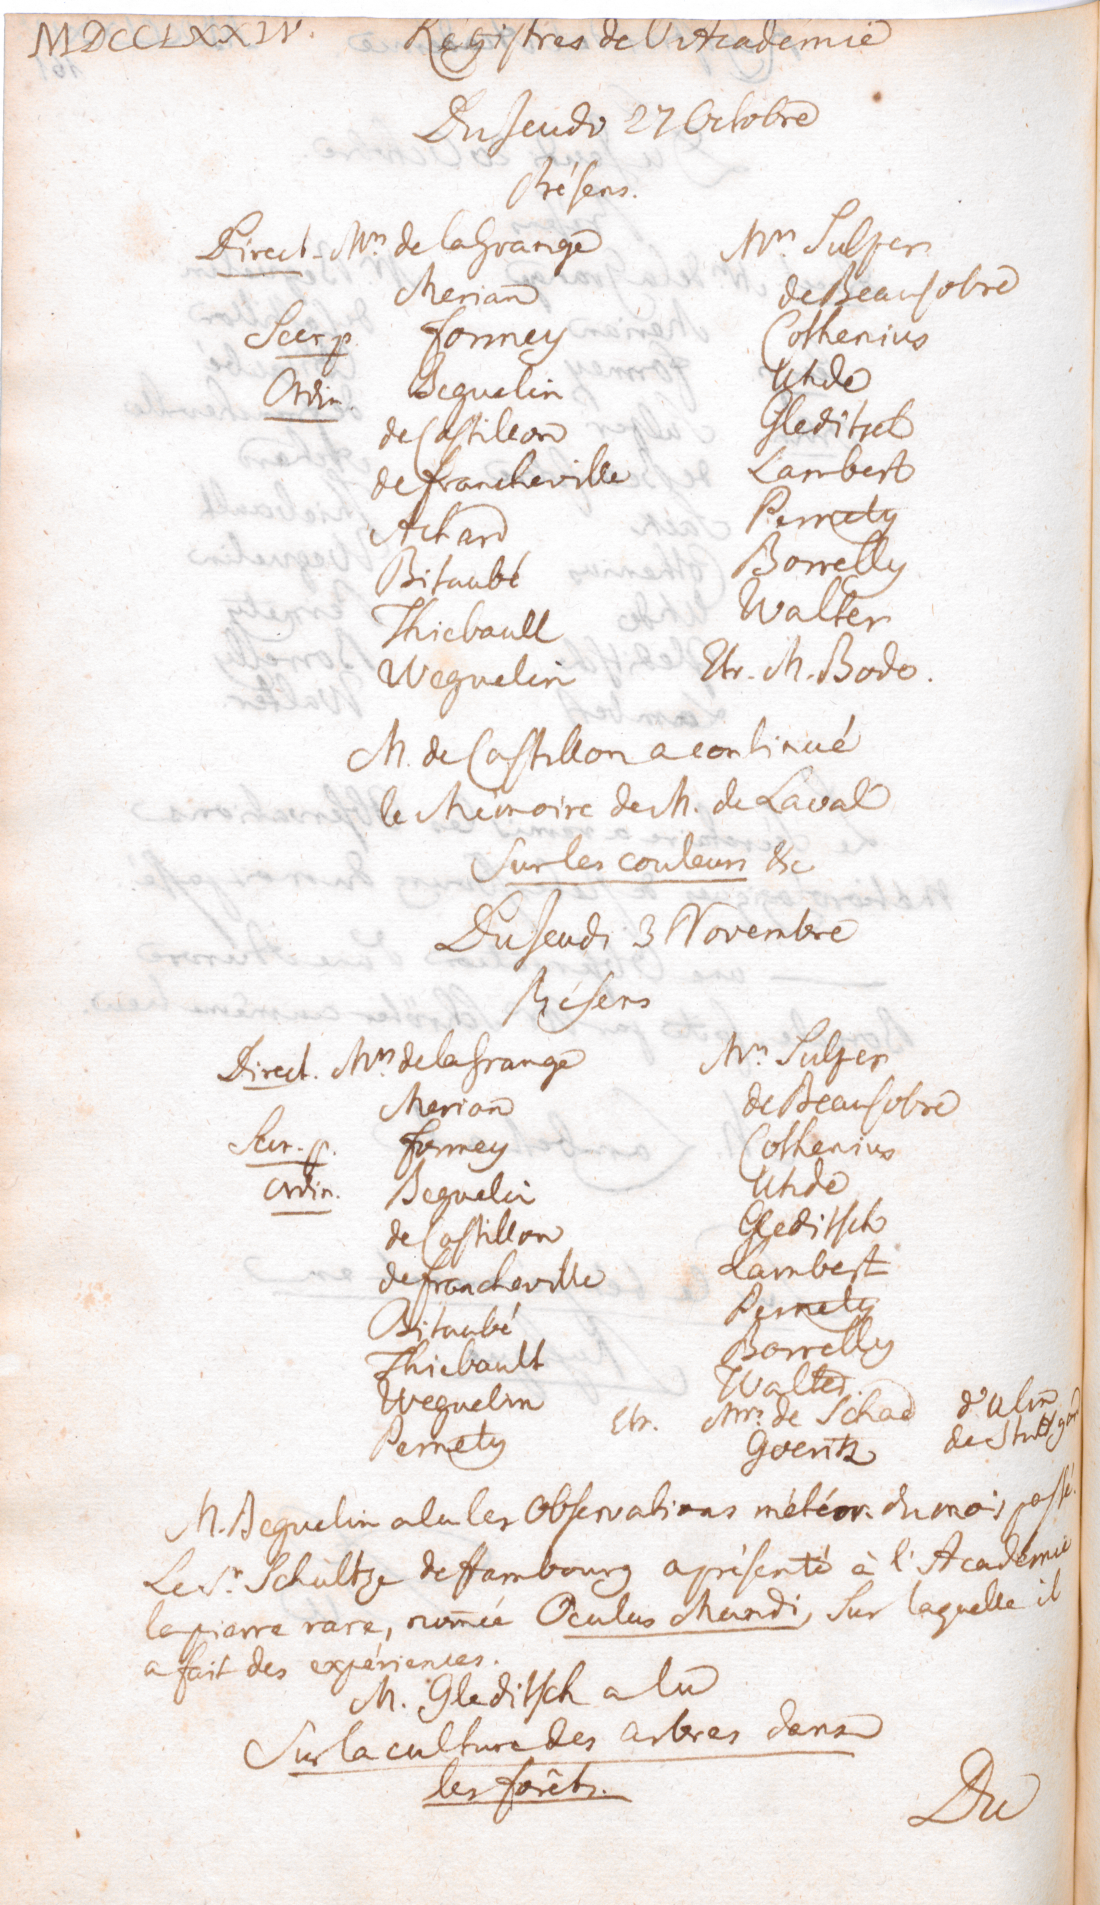 MDCCLXXIV. Régistres de l'Académie
Du Jeudi 27 Octobre
Présens.
Direct. Mrs. de la Grange Mrs. Sulzer
Merian de Beausobre
Secr. p. Formey Cothenius
Ordin. Beguelin Uhde
de Castillon Gleditsch
de Francheville Lambert
Achard Pernety
Bitaubé Borrelly
Thiebault Walter
Weguelin Etr. M. Bode.
M. de Castillon a continué
le Mémoire de M. de Laval
Sur les couleurs &c
Du Jeudi 3 Novembre
Présens
Direct. Mrs. de la Grange Mrs. Sulzer
Merian de Beausobre
Secr. p. Formey Cothenius
Ordin. Beguelin Uhde
de Castillon Gleditsch
de Francheville Lambert
Bitaubé Pernety
Thiebault Borrelly
Weguelin Walter.
Pernety Etr. Mrs. de Schad d'Ulm
Goeritz
M. Beguelin a lu les Observations météor. du mois passé.
Le Sr. Schultze de Hambourg a présenté à l'Académie
la pierre rare, nom̄ée Oculus Mundi, Sur laquelle il
a fait des expériences.
M. Gleditsch a lu
Sur la culture des arbres dans
les forêts.
Du